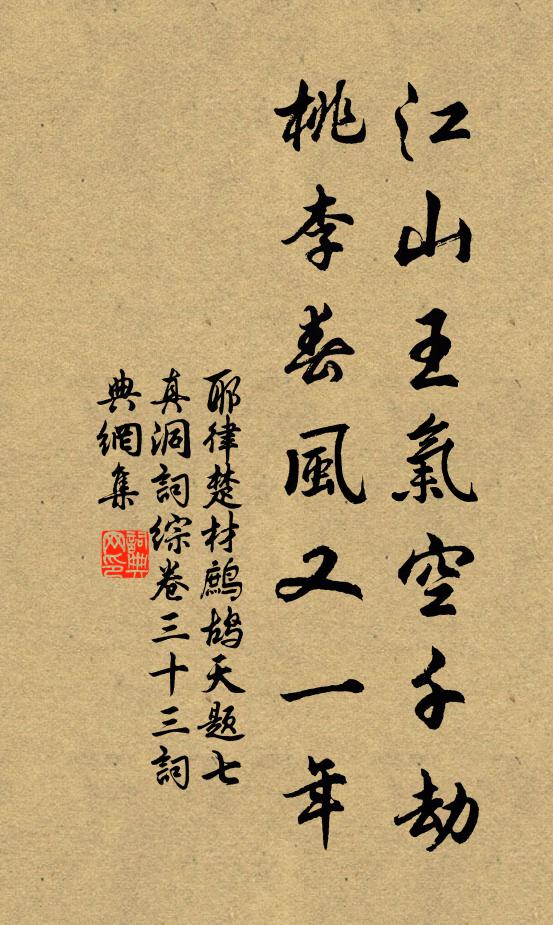 江山王氣空千劫
桃李春風又一年
耶律楚材鷓鴣天題七
真洞詞綜卷三十三詞
典網集
詞典网印